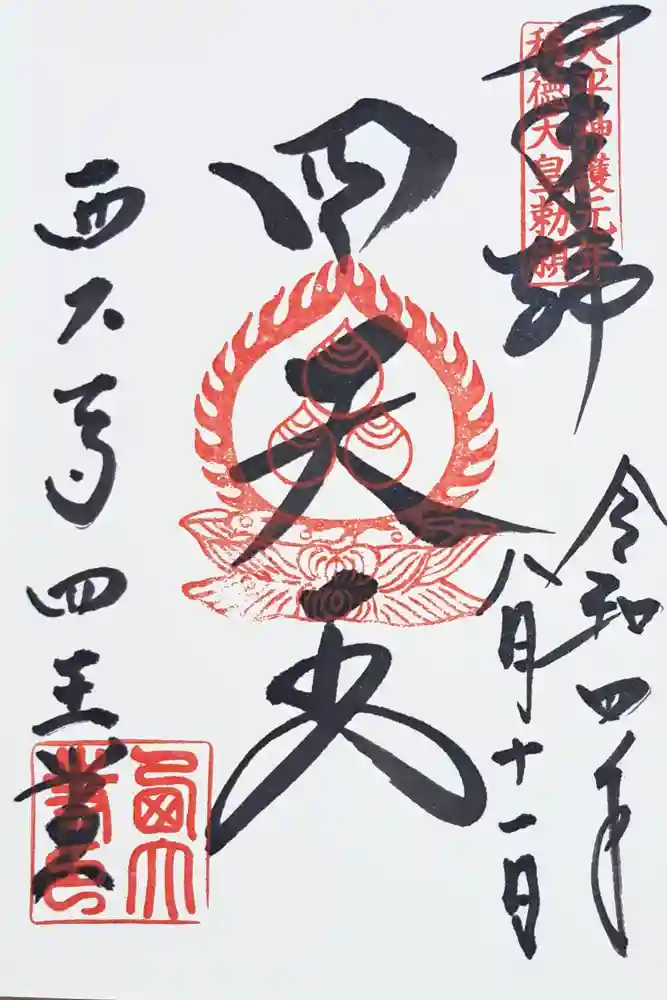 奉拝
天平神護元年
称徳天皇勅願
令和四年
八月十一日
四天
西大寺四王堂